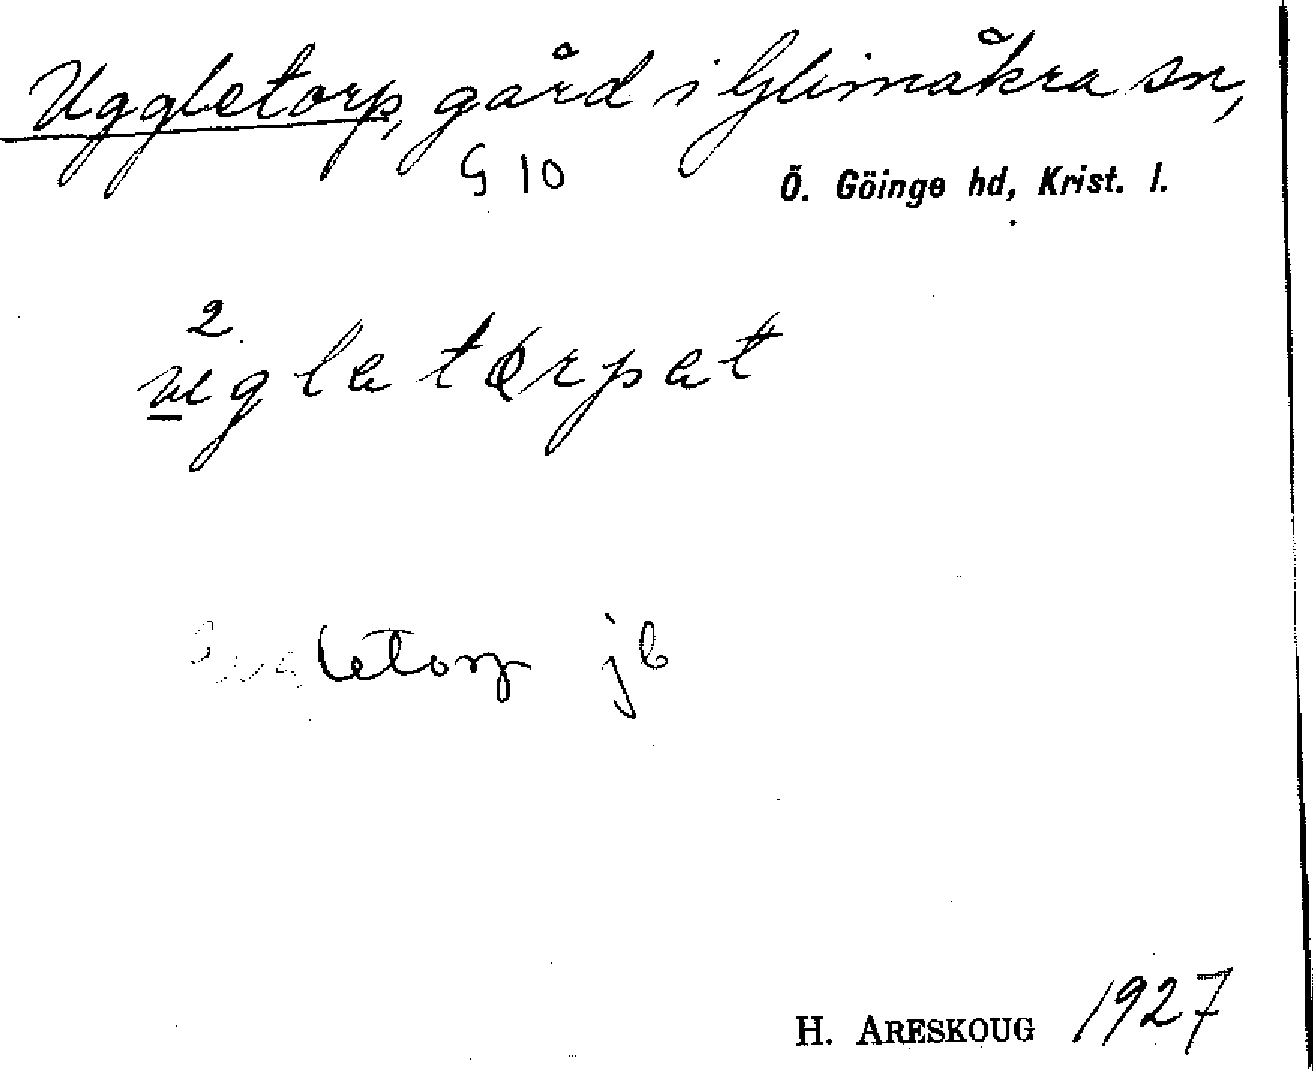 Uggletorp, gård i Glimåkra sn,
G 10 Ö. Göinge hd, Krist. l.
2
letorp jb
H. ARESKOUG 1927